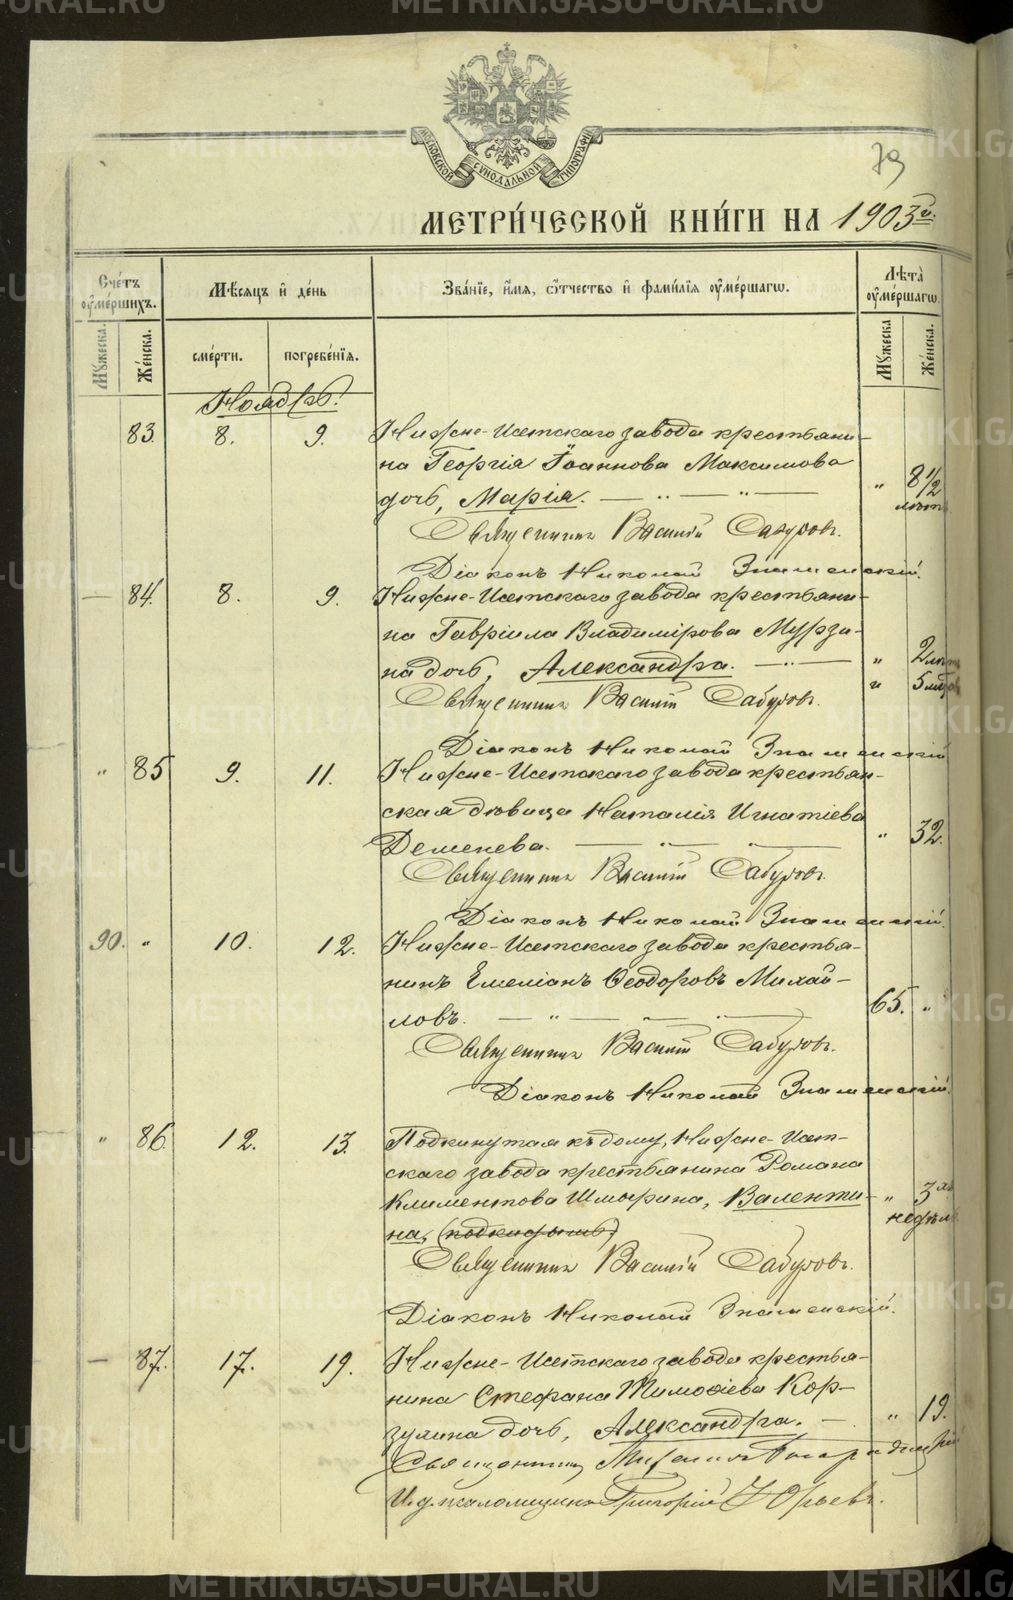 METRIKI.GASU-URAL.RU
МОСКОВСКОЙ СѴНОДАЛЬНОЙ ТИПОГРАФІИ
79
МЕТРИ́ЧЕСКОЙ КНИ́ГИ НА 1903 й.
Сче́тъ ᲂу҆ме́ршихъ.
Мѣ́сяцъ и҆ де́нь
Зва́нїе, и҆́мя, ѻ҆́тчество и҆ фами́лїя ᲂу҆ме́ршагѡ.
Лѣта̀ ᲂу҆ме́ршагѡ.
Мꙋ́жеска. Же́нска.
сме́рти. погребе́нїя.
Мꙋ́жеска Же́нска.
Ноябрь.
83. 8. 9. Нижне-Исетскаго завода крестьяни-
на Георгія Іоаннова Максимова
дочь, Марія. — „ — „ — „ 8 1/2 лѣтъ
Священникъ Василій Сабуровъ.
Діаконъ Николай Знаменскій.
— 84. 8. 9. Нижне-Исетскаго завода крестьяни-
на Гавріила Владимірова Мурзи-
на дочь, Александра. — „ — „ 2 лѣтъ
„ 5 мѣсяц
Священникъ Василій Сабуровъ.
Діаконъ Николай Знаменскій
„ 85 9. 11. Нижне-Исетскаго завода крестьян-
ская дѣвица Наталія Игнатіева
Деменева. — „ — „ — „ 32.
Священникъ Василій Сабуровъ.
Діаконъ Николай Знаменскій.
90. „ 10. 12. Нижне-Исетскаго завода крестья-
нинъ Емеліанъ Ѳеодоровъ Михай-
ловъ. — „ — „ — „ — 65. „
Священникъ Василій Сабуровъ.
Діаконъ Николай Знаменскій.
„ 86. 12. 13. Подкинутая къ дому, Нижне-Исет-
скаго завода крестьянина Романа
Климентова Шмырина, Валенти- „ 3хъ
на, (подкидышъ) недѣль
Священникъ Василій Сабуровъ.
Діаконъ Николай Знаменскій.
— 87. 17. 19. Нижне-Исетскаго завода крестья-
нина Стефана Тимоѳіева Кор-
зулина дочь, Александра. — „ 19.
Священникъ
Псаломщикъ Григорій Юрьевъ.